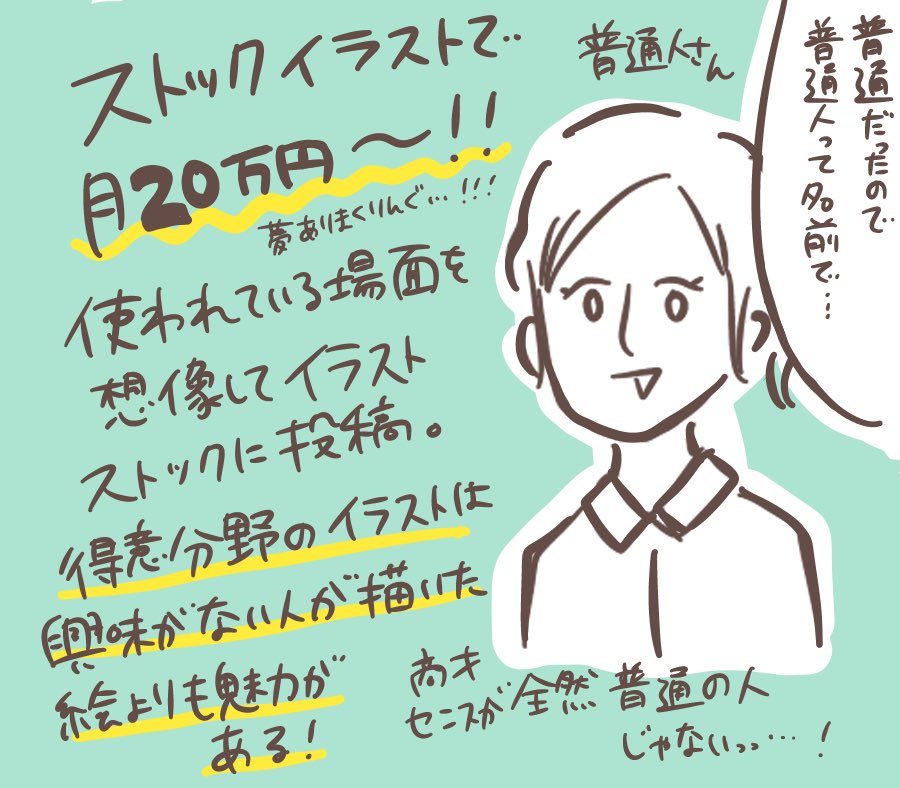 ストックイラストで
月20万円〜!!
夢ありまくりんぐ…!!!
使われている場面を
想像してイラスト
ストックに投稿。
得意分野のイラストは
興味がない人が描いた
絵よりも魅力が
ある!
普通人さん
普通だったので
普通人って名前で…
商才
センスが全然普通の人
じゃないっっ…!